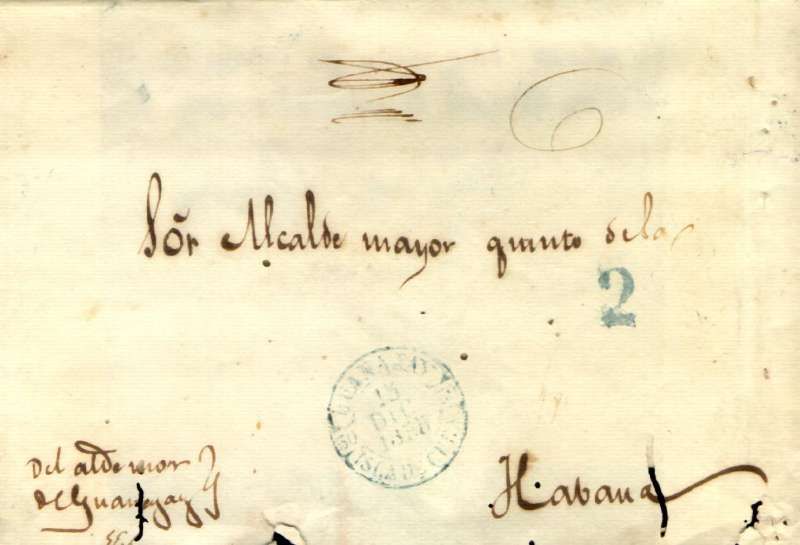 Sōr Alcalde mayor quinto dela
2
15
DIC
ISLA DE CUBA
Del alde mor
de Guanajay
Habana